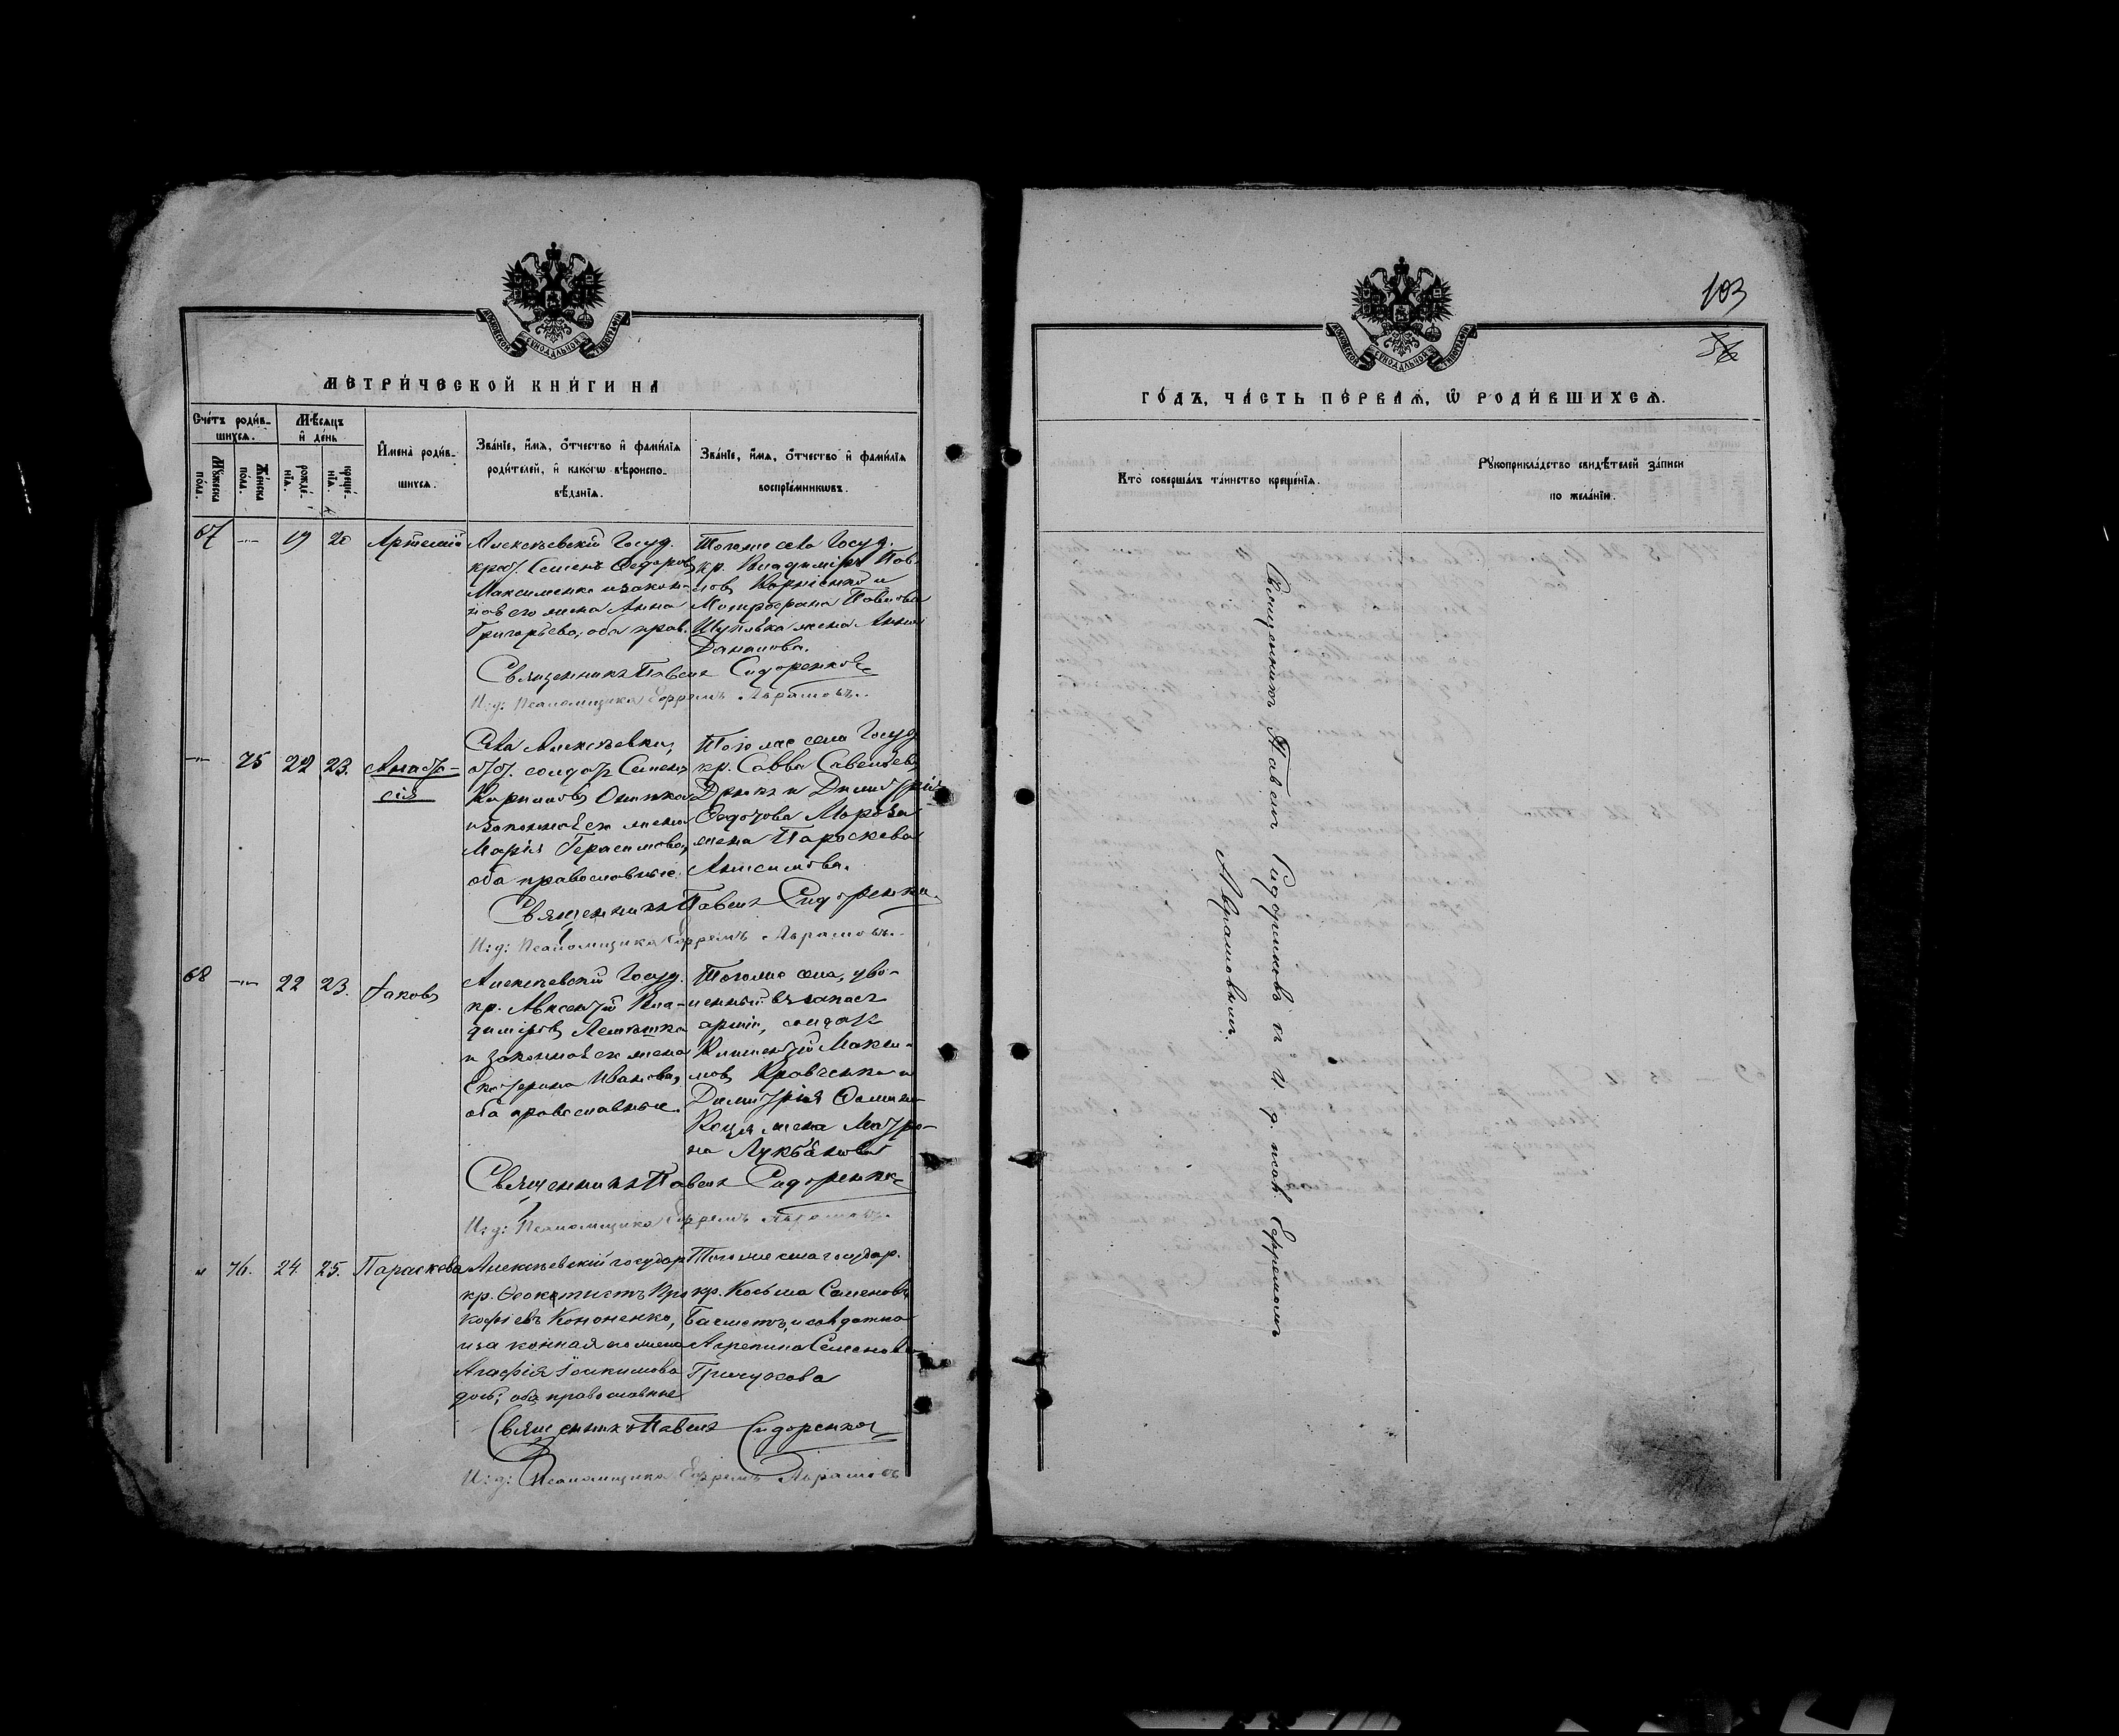 МЕТРИЧЕСКОЙ КНИГИ НА
Счетъ родив-
шихся.
Мѣсяцъ
и день
Мужеска
пола.
Женска
пола.
рожде-
нія.
креще-
нія.
Имена родив-
шихся.
Званіе, имя, отчество и фамилія
родителей, и какого вѣроиспо-
вѣданія.
Званіе, имя, отчество и фамилія
воспріемниковъ.
67 19 20 Артемій
Алексѣевскій Госуд.
крест. Семенъ Ѳедоровъ
Максименко и закон-
ная его жена Анна
Григорьева, оба прав.
Тогоже села Госуд.
кр. Владиміръ Пав-
ловъ Корніенко и
Митрофана Павлова
жена Анна
Данилова.
Священникъ Павелъ Сидоренковъ
И. д: Псаломщика Ефремъ Абрамовъ.
75 22 23. Анаста-
сія
Села Алексѣевки,
солдатъ Семенъ
Кирилловъ
и законная его жена
Марія Герасимова,
оба православные.
Тогоже села Госуд.
кр. Савва Савельевъ
и Димитрія
Ѳедотова Мороза
жена Параскева
Анисимова.
Священникъ Павелъ Сидоренко
И: д: Псаломщика Ефремъ Абрамовъ.
68 22 23. Іаковъ
Алексѣевскій Госуд.
кр. Авксентій Вла-
диміровъ
и законная его жена
Екатерина Иванова,
оба православные.
Тогоже села, уво-
ленный въ запасъ
арміи, солдатъ
Климентій Макси-
мовъ Кравченко и
Димитрія Ѳомина
Коця жена Матро-
на Лукьянова
Священникъ Павелъ Сидоренко
И: д: Псаломщика Ефремъ Абрамовъ.
76. 24. 25. Параскева
Алексѣевскій государ
кр. Ѳеоктистъ Про
кофіевъ Кононенко,
и законная его жена
Агафія Іоакимова
оба православные
Тогоже села государ.
кр. Косьма Семеновъ
и солдатка
Агрепина Семенова
Священникъ Павелъ Сидоренко
И: д: Псаломщика Ефремъ Абрамовъ
МОСКОВСКОЙ СѴНОДАЛЬНОЙ ТИПОГРАФІИ
103
ГОДЪ, ЧАСТЬ ПЕРВАЯ, Ѡ РОДИВШИХСЯ.
Кто совершалъ таинство крещенія.
Рукоприкладство свидѣтелей записи
по желанію.
Священникъ Павелъ Сидоренковъ съ И. д. псал. Ефремомъ
Абрамовымъ.